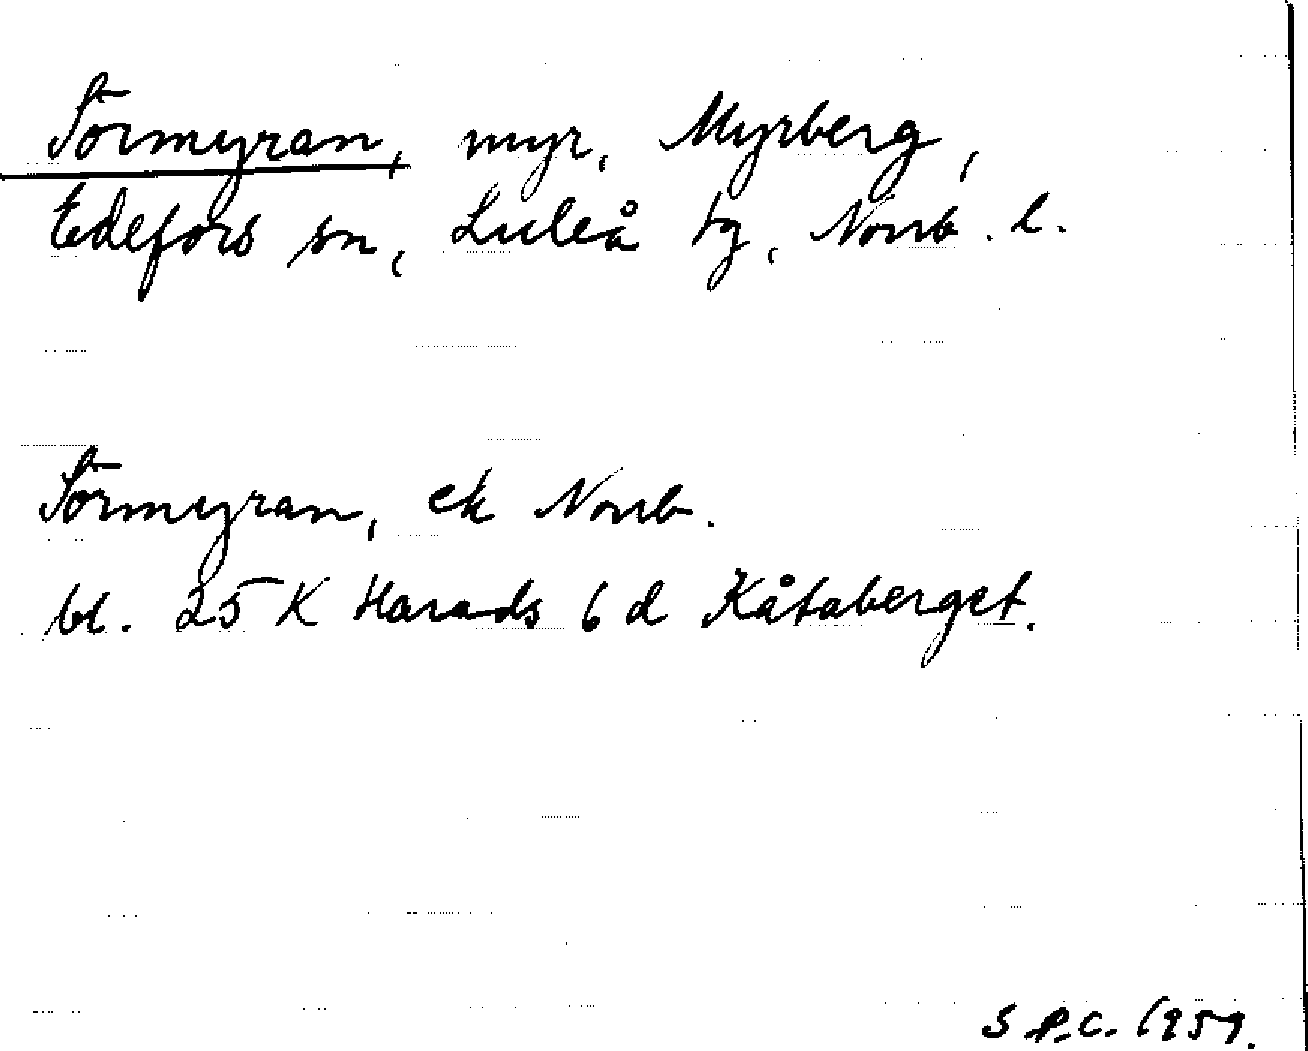 Sörmyran, myr, Myrberg,
Edefors sn, Luleå tg, Norrb. l.
Sörmyran, ek Norrb.
bl. 25 K Harads 6 d Kåtaberget.
S P.C. 1959.